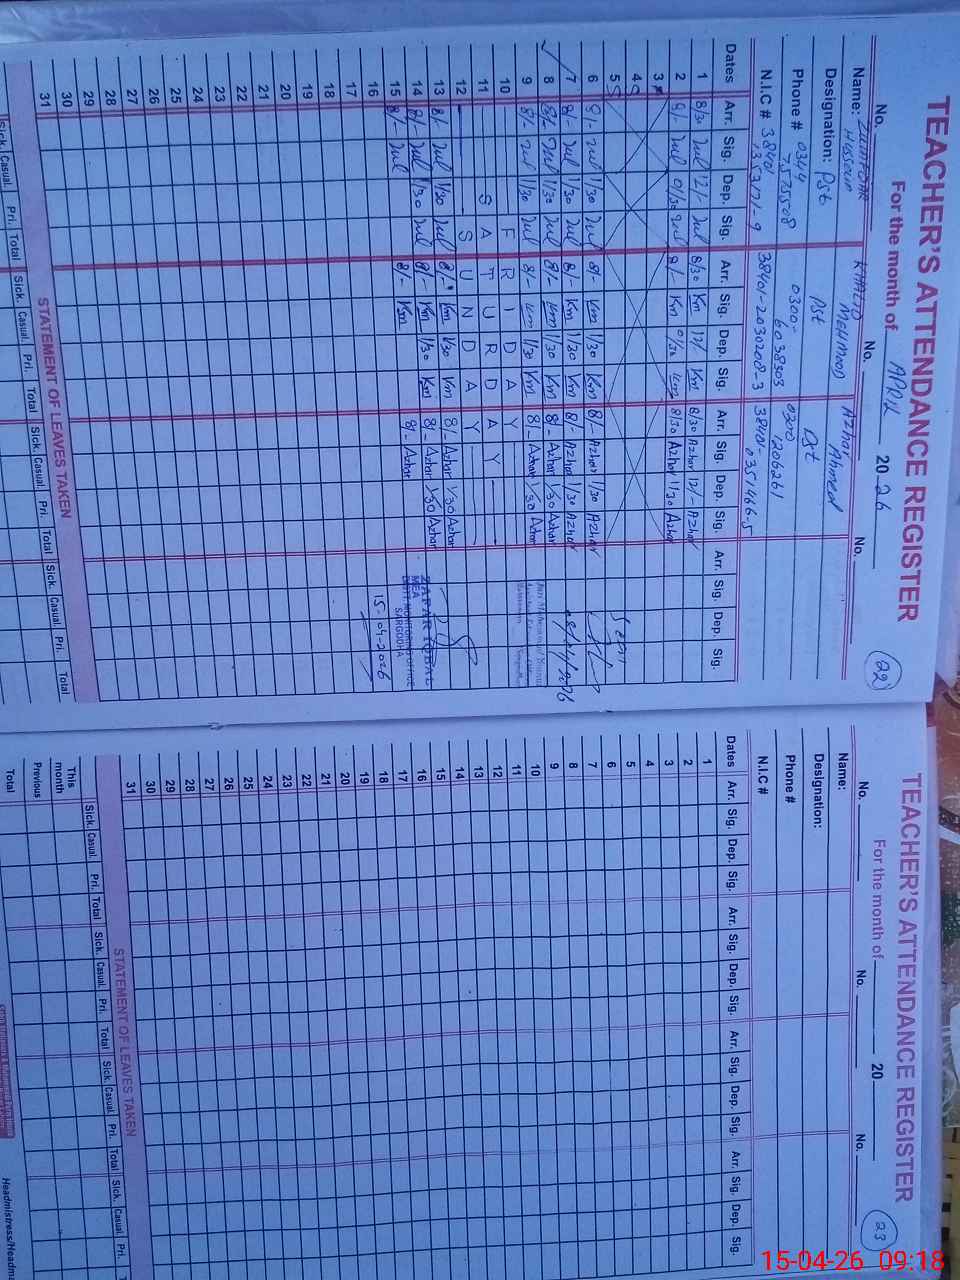 TEACHER'S ATTENDANCE REGISTER
For the month of APRIL 20 26
22
No. No. No.
Name: Hussain KHALID MEHMOOD Azhar Ahmed
Designation: Pst Pst Pst
Phone # 0344 7575508 0300- 6038303 0300 1206261
N.I.C # 38401 38401-2030208-3 38401- 0351466-5
Dates Arr. Sig. Dep. Sig. Arr. Sig. Dep. Sig. Arr. Sig. Dep. Sig. Arr. Sig. Dep. Sig.
1 8/30 12/- 8/30 Km 12/- Km 8/30 Azhar 12/- Azhar
2 8/- 01/30 8/- Km 01/30 Km 8/30 Azhar 1/30 Azhar
3
4
5
6 8/- 1/30 8/- Km 1/30 Km 8/- Azhar 1/30 Azhar
7 8/- 1/30 8/- Km 1/30 Km 8/- Azhar 1/30 Azhar
8 8/- 1/30 8/- Km 1/30 Km 8/- Azhar 1/30 Azhar
9 8/- 1/30 8/- Km 1/30 Km 8/- Azhar 1/30 Azhar
10 F R I D A Y
11 S A T U R D A Y
12 S U N D A Y
13 8/- 1/30 8/- Km 1/30 Km 8/- Azhar 1/30 Azhar
14 8/- 1/30 8/- Km 1/30 Km 8/- Azhar 1/30 Azhar
15 8/- 8/- Km 8/- Azhar
ZAFAR IQBAL
MEA
DISTT. MONITORING OFFICE
SARGODHA
15-04-2026
16
17
18
19
20
21
22
23
24
25
26
27
28
29
30
31
STATEMENT OF LEAVES TAKEN
Sick. Casual. Pri. Total Sick. Casual. Pri. Total Sick. Casual. Pri. Total Sick. Casual. Pri. Total
TEACHER'S ATTENDANCE REGISTER
For the month of 20
23
No. No. No.
Name:
Designation:
Phone #
N.I.C #
Dates Arr. Sig. Dep. Sig. Arr. Sig. Dep. Sig. Arr. Sig. Dep. Sig. Arr. Sig. Dep. Sig.
1
2
3
4
5
6
7
8
9
10
11
12
13
14
15
16
17
18
19
20
21
22
23
24
25
26
27
28
29
30
31
STATEMENT OF LEAVES TAKEN
Sick. Casual. Pri. Total Sick. Casual. Pri. Total Sick. Casual. Pri. Total Sick. Casual. Pri.
This month
Previous
Total
15-04-26 09:18